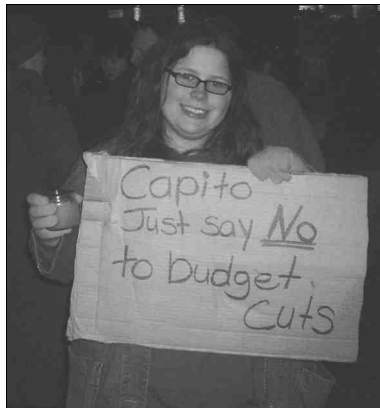 Capito
Just say No
to budget
Cuts